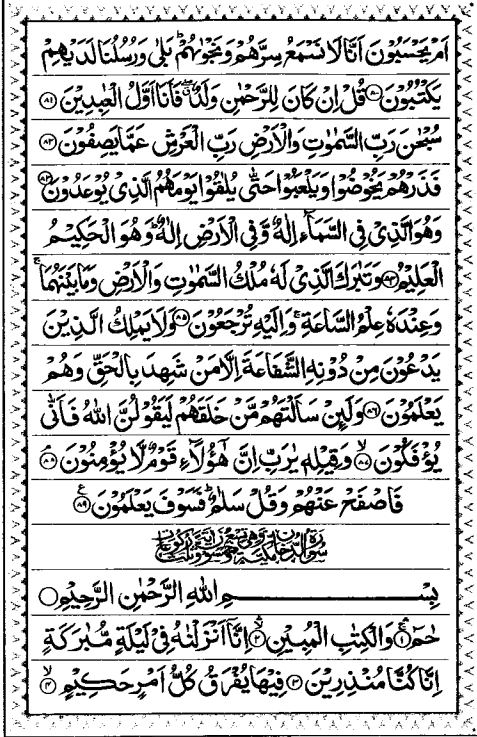 اَمْ يَحْسَبُوْنَ اَنَّا لَا نَسْمَعُ سِرَّهُمْ وَنَجْوٰىهُمْ ؕ بَلٰى وَرُسُلُنَا لَدَيْهِمْ
يَكْتُبُوْنَ ﴿۸۰﴾ قُلْ اِنْ كَانَ لِلرَّحْمٰنِ وَلَدٌ ۖ فَاَنَا اَوَّلُ الْعٰبِدِيْنَ ﴿۸۱﴾
سُبْحٰنَ رَبِّ السَّمٰوٰتِ وَالْاَرْضِ رَبِّ الْعَرْشِ عَمَّا يَصِفُوْنَ ﴿۸۲﴾
فَذَرْهُمْ يَخُوْضُوْا وَيَلْعَبُوْا حَتّٰى يُلٰقُوْا يَوْمَهُمُ الَّذِيْ يُوْعَدُوْنَ ﴿۸۳﴾
وَهُوَ الَّذِيْ فِى السَّمَآءِ اِلٰهٌ وَّفِى الْاَرْضِ اِلٰهٌ ؕ وَهُوَ الْحَكِيْمُ
الْعَلِيْمُ ﴿۸۴﴾ وَتَبٰرَكَ الَّذِيْ لَهٗ مُلْكُ السَّمٰوٰتِ وَالْاَرْضِ وَمَا بَيْنَهُمَا ۚ
وَعِنْدَهٗ عِلْمُ السَّاعَةِ ۚ وَاِلَيْهِ تُرْجَعُوْنَ ﴿۸۵﴾ وَلَا يَمْلِكُ الَّذِيْنَ
يَدْعُوْنَ مِنْ دُوْنِهِ الشَّفَاعَةَ اِلَّا مَنْ شَهِدَ بِالْحَقِّ وَهُمْ
يَعْلَمُوْنَ ﴿۸۶﴾ وَلَئِنْ سَاَلْتَهُمْ مَّنْ خَلَقَهُمْ لَيَقُوْلُنَّ اللّٰهُ فَاَنّٰى
يُؤْفَكُوْنَ ﴿۸۷﴾ وَقِيْلِهٖ يٰرَبِّ اِنَّ هٰٓؤُلَآءِ قَوْمٌ لَّا يُؤْمِنُوْنَ ﴿۸۸﴾
فَاصْفَحْ عَنْهُمْ وَقُلْ سَلٰمٌ ؕ فَسَوْفَ يَعْلَمُوْنَ ﴿۸۹﴾
بِسْمِ اللّٰهِ الرَّحْمٰنِ الرَّحِيْمِ
حٰمٓ ﴿۱﴾ وَالْكِتٰبِ الْمُبِيْنِ ﴿۲﴾ اِنَّآ اَنْزَلْنٰهُ فِيْ لَيْلَةٍ مُّبٰرَكَةٍ
اِنَّا كُنَّا مُنْذِرِيْنَ ﴿۳﴾ فِيْهَا يُفْرَقُ كُلُّ اَمْرٍ حَكِيْمٍ ﴿۴﴾